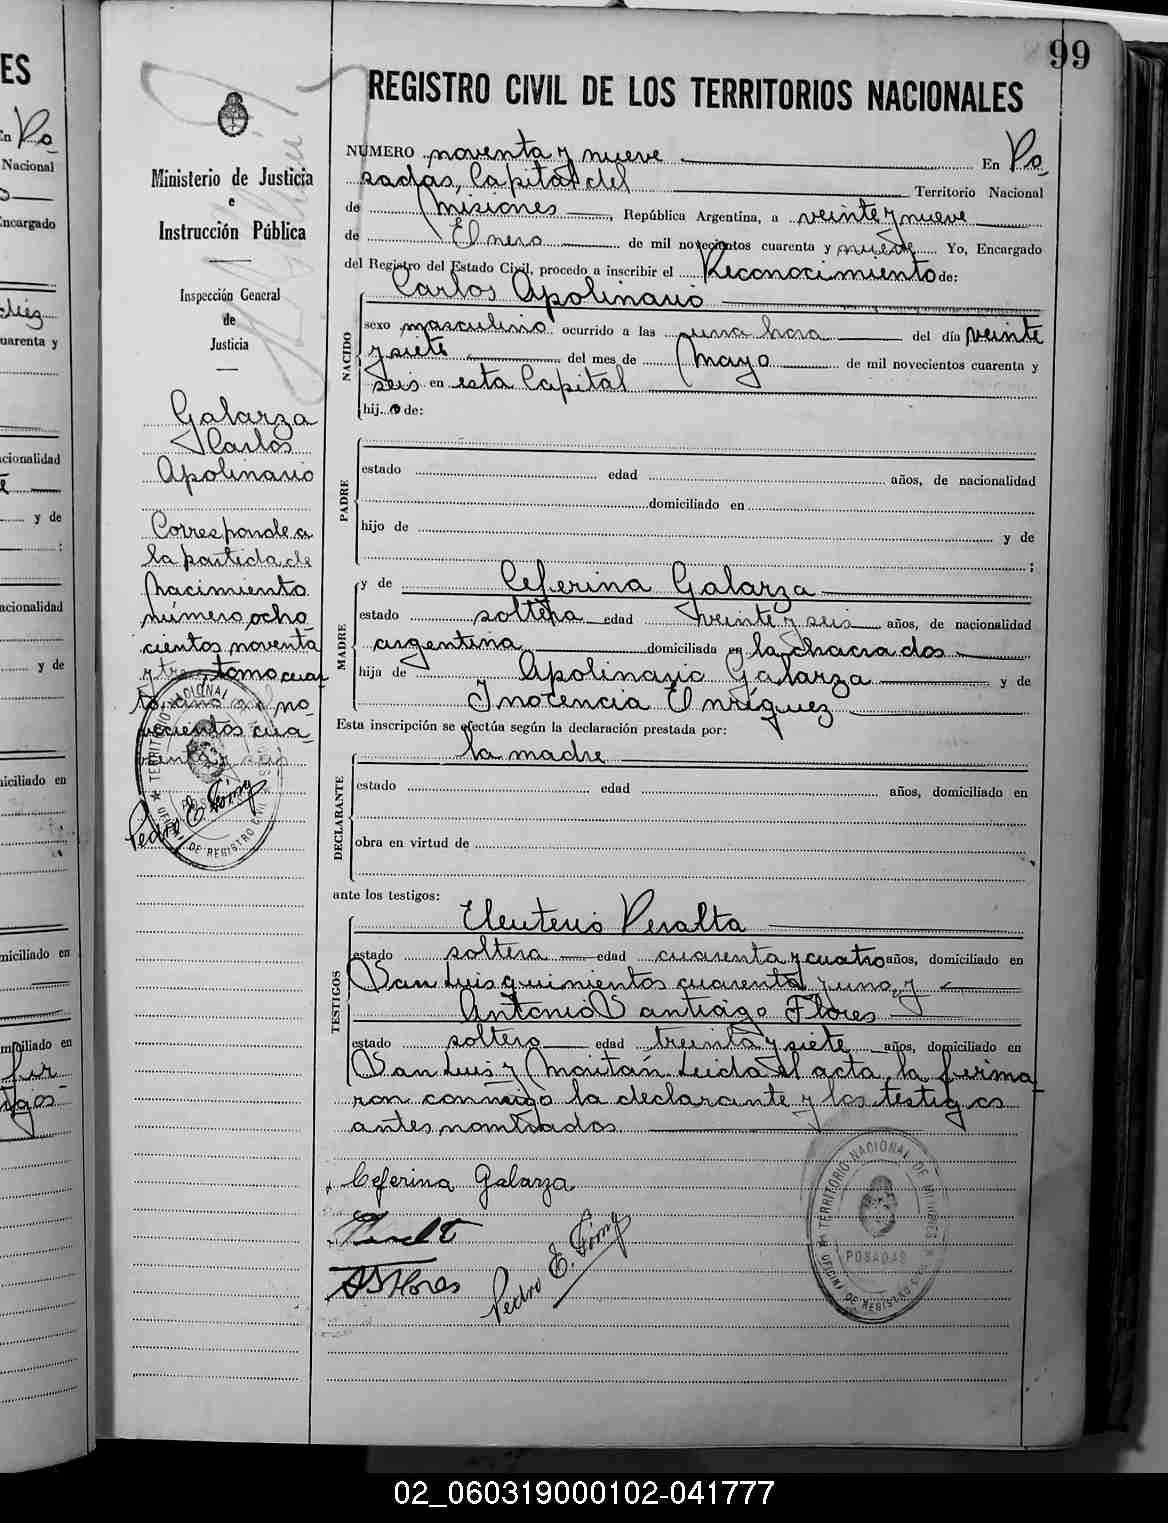 99
REGISTRO CIVIL DE LOS TERRITORIOS NACIONALES
Ministerio de Justicia
e
Instrucción Pública
Inspección General
de
Justicia
Galarza
Carlos
Apolinario
Corresponde a
la partida de
nacimiento
número ocho
cientos noventa
y tres, tomo cuar
to, año mil no-
vecientos cua-
renta y seis
Pedro E.
TERRITORIO NACIONAL DE MISIONES
OFICINA DE REGISTRO CIVIL
NUMERO noventa y nueve En Po
sadas, Capital del Territorio Nacional
de Misiones, República Argentina, a veinte y nueve
de Enero de mil novecientos cuarenta y nueve Yo, Encargado
del Registro del Estado Civil, procedo a inscribir el Reconocimiento de:
NACIDO
Carlos Apolinario
sexo masculino ocurrido a las una hora del día veinte
y siete del mes de Mayo de mil novecientos cuarenta y
seis en esta Capital
hijo de:
PADRE
estado edad años, de nacionalidad
domiciliado en
hijo de y de
;
MADRE
y de Ceferina Galarza
estado soltera edad veinte y seis años, de nacionalidad
argentina domiciliada en la chacra dos
hija de Apolinario Galarza y de
Inocencia Enríquez
Esta inscripción se efectúa según la declaración prestada por:
DECLARANTE
la madre
estado edad años, domiciliado en
obra en virtud de
ante los testigos:
TESTIGOS
Eleuterio Peralta
estado soltero edad cuarenta y cuatro años, domiciliado en
San Luis quinientos cuarenta y uno, y
Antonio Santiago Flores
estado soltero edad treinta y siete años, domiciliado en
San Luis y Moritán. Leida el acta, la firma
ron conmigo la declarante y los testigos
antes nombrados
Ceferina Galarza
ASFlores
Pedro E.
TERRITORIO NACIONAL DE MISIONES
POSADAS
OFICINA DE REGISTRO CIVIL
ES
En Po
Nacional
Encargado
diez
cuarenta y
nacionalidad
y de
;
nacionalidad
y de
domiciliado en
domiciliado en
domiciliado en
fir
tigos
02_060319000102-041777